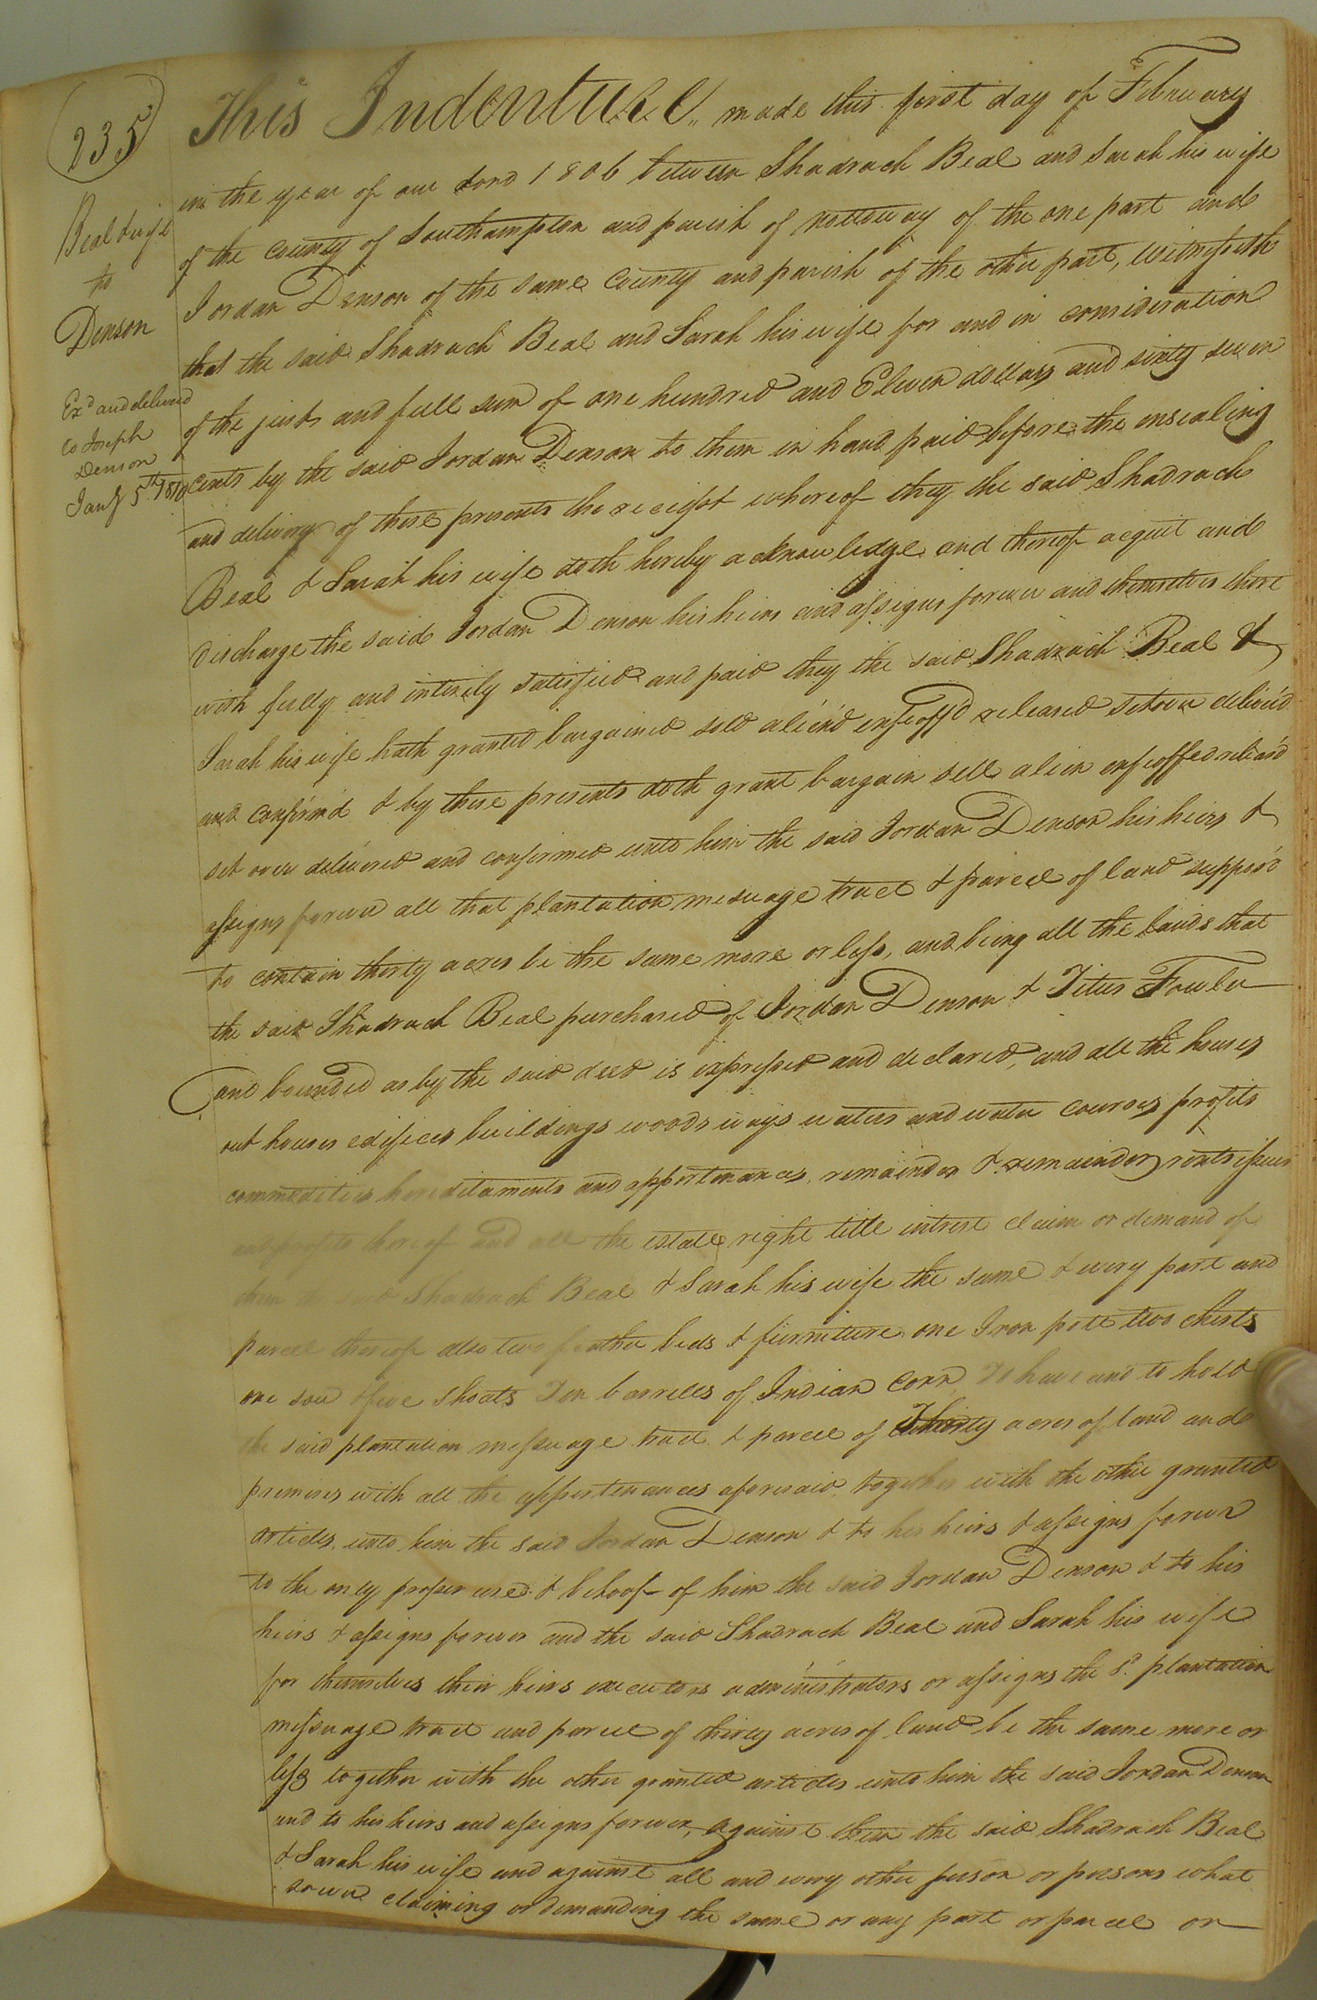 235
Beal & wife
to
Denson
Exd. and deliverd
to Joseph
Denson
Jany 5th 1810
This Indenture, made this first day of February
in the year of our Lord 1806 between Shadrach Beal and Sarah his wife
of the county of Southampton and parish of nottoway of the one part and
Jordan Denson of the same county and parish of the other part, Witnesseth
that the said Shadrach Beal and Sarah his wife for and in consideration
of the just and full sum of one hundred and Eleven dollars and sixty seven
cents by the said Jordan Denson to them in hand paid before the ensealing
and delivery of these presents the receipt whereof they the said Shadrach
Beal & Sarah his wife doth hereby acknowledge and thereof acquit and
discharge the said Jordan Denson his heirs and assigns forever and themselves there
with fully and intirely satisfied and paid they the said Shadrach Beal &
Sarah his wife hath granted bargained sold alien'd enfeoff'd released setover deliver'd
and confirm'd & by these presents doth grant bargain sell alien enfeoffed releas'd
set over delivered and confirmed unto him the said Jordan Denson his heirs &
assigns forever all that plantation mesuage tract & parcel of land suppos'd
to contain thirty acres be the same more or less, and being all the lands that
the said Shadrach Beal purchased of Jordan Denson & Titus Fowler
and bounded as by the said deed is expressed and declared, and all the houses
out houses edifices buildings woods ways waters and water courses profits
commodities hereditaments and appertenances, remainder & remainders rents issues
and profits thereof and all the estate right title intrest claim or demand of
them the said Shadrach Beal & Sarah his wife the same & every part and
parcel thereof also two feather beds & furniture one Iron pott two chests
one sow & five Shoats Ten barrells of Indian Corn To have and to hold
the said plantation messuage tract & parcel of Thirty acres of land and
premises with all the appertenances aforesaid together with the other granted
articles unto him the said Jordan Denson & to his heirs & assigns forever
to the only proper use & behoof of him the said Jordan Denson & to his
heirs & assigns forever and the said Shadrach Beal and Sarah his wife
for themselves their heirs executors administrators or assigns the sd. plantation
messuage tract and parcel of thirty acres of land be the same more or
less together with the other granted articles unto him the said Jordan Denson
and to his heirs and assigns forever, against them the said Shadrach Beal
& Sarah his wife and against all and every other person or persons what
soever claiming or demanding the same or any part or parcel or